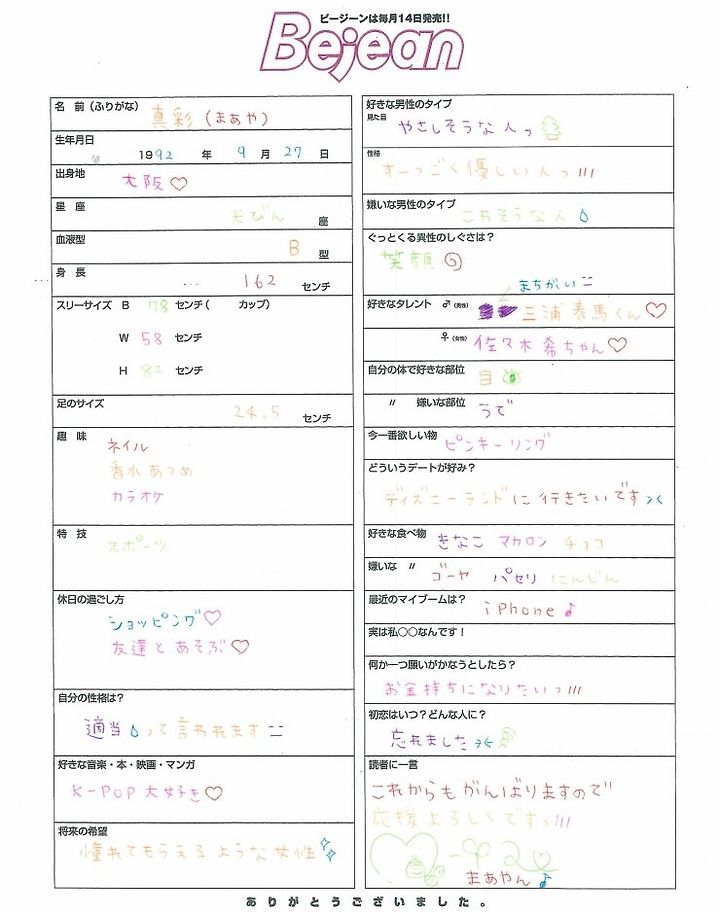 ビージーンは毎月14日発売!!
Bejean
名 前 (ふりがな) 真彩 (まあや)
生年月日
1992 年 9 月 27 日
出身地
大阪♡
星 座 天びん 座
血液型 B 型
身 長 162 センチ
スリーサイズ B 78 センチ( カップ)
W 58 センチ
H 82 センチ
足のサイズ 24.5 センチ
趣 味
ネイル
香水あつめ
カラオケ
特 技
スポーツ
休日の過ごし方
ショッピング♡
友達とあそぶ♡
自分の性格は?
適当って言われます
好きな音楽・本・映画・マンガ
K-POP 大好き♡
将来の希望
憧れてもらえるような女性
好きな男性のタイプ
見た目
やさしそうな人っ
性格
すーっごく優しい人っ!!!
嫌いな男性のタイプ
こわそうな人
ぐっとくる異性のしぐさは?
笑顔
まちがい
好きなタレント ♂(男性) 三浦春馬くん♡
♀(女性) 佐々木希ちゃん♡
自分の体で好きな部位
目
〃 嫌いな部位
うで
今一番欲しい物
ピンキーリング
どういうデートが好み?
ディズニーランドに行きたいです
好きな食べ物 きなこ マカロン チョコ
嫌いな 〃 ゴーヤ パセリ にんじん
最近のマイブームは? iPhone♪
実は私〇〇なんです!
何か一つ願いがかなうとしたら?
お金持ちになりたいっ!!!
初恋はいつ?どんな人に?
忘れました
読者に一言
これからもがんばりますので
応援よろしくですっ!!!
まあやん♪
ありがとうございました。